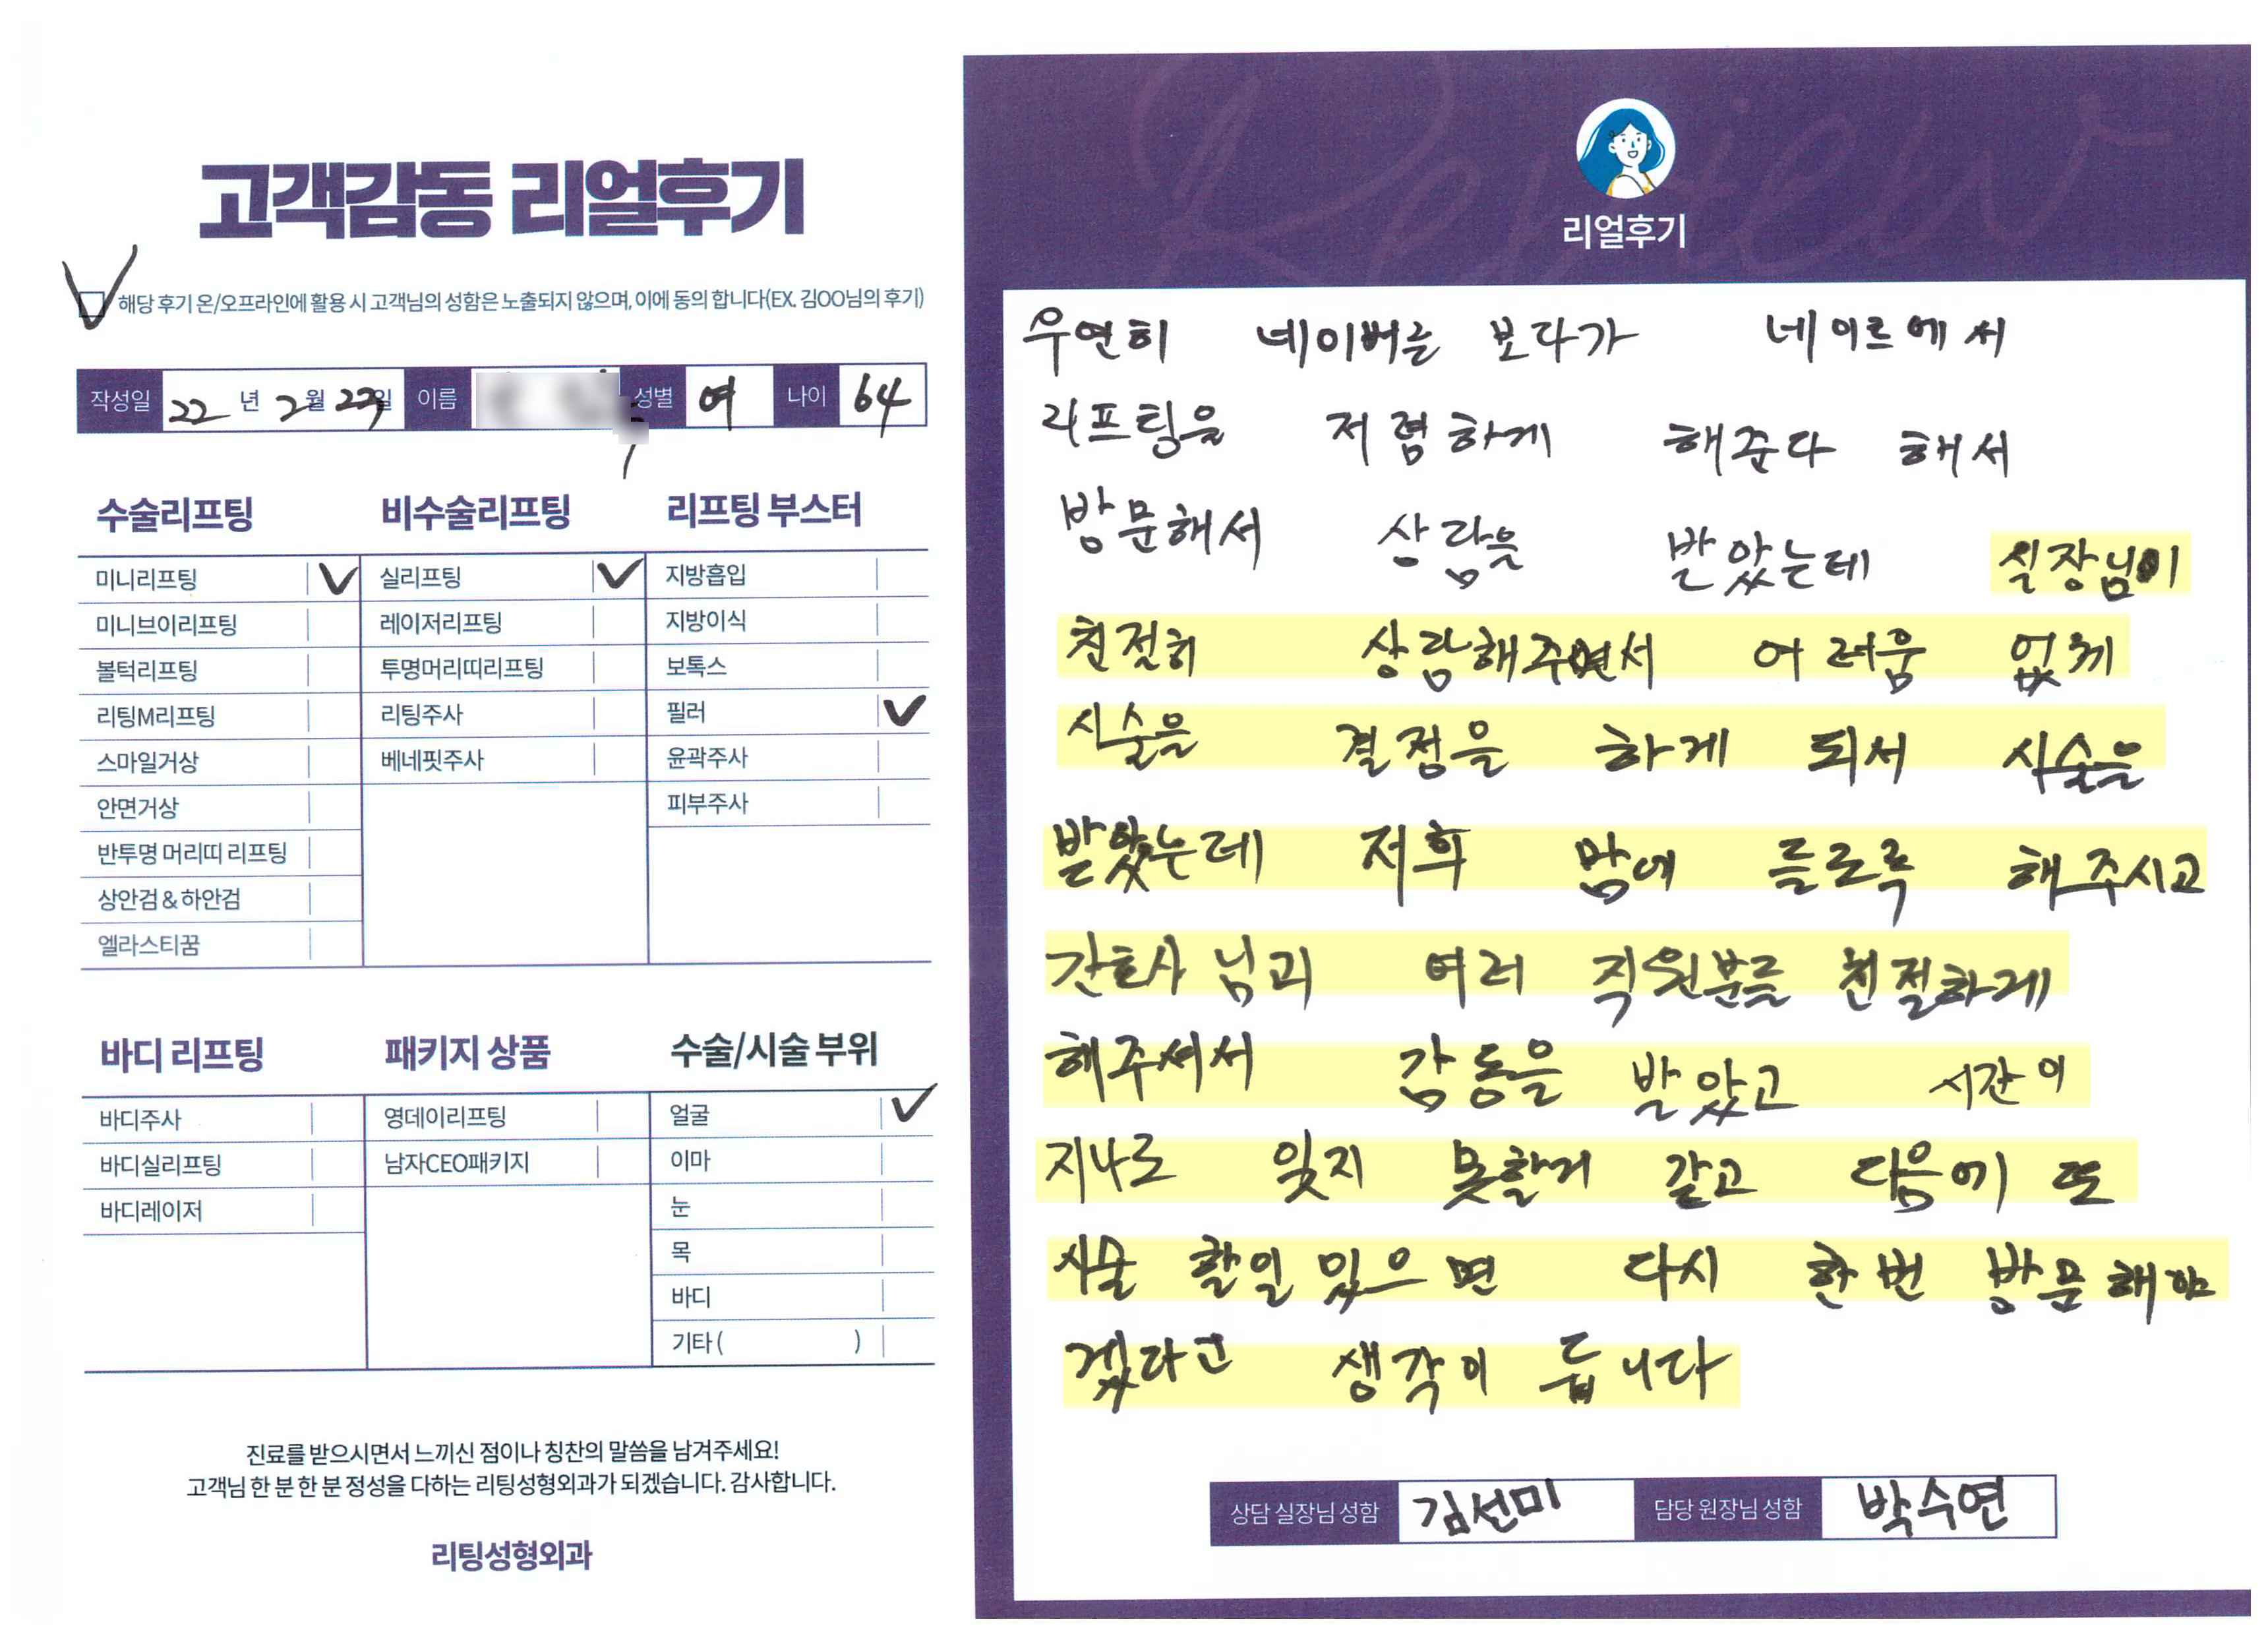 고객감동 리얼후기
해당 후기 온/오프라인에 활용 시 고객님의 성함은 노출되지 않으며, 이에 동의 합니다(EX. 김OO님의 후기)
작성일 22년 2월 27일 이름 성별 여 나이 64
수술리프팅
미니리프팅
미니브이리프팅
볼턱리프팅
리팅M리프팅
스마일거상
안면거상
반투명 머리띠 리프팅
상안검 & 하안검
엘라스티꿈
비수술리프팅
실리프팅
레이저리프팅
투명머리띠리프팅
리팅주사
베네핏주사
리프팅 부스터
지방흡입
지방이식
보톡스
필러
윤곽주사
피부주사
바디 리프팅
바디주사
바디실리프팅
바디레이저
패키지 상품
영데이리프팅
남자CEO패키지
수술/시술 부위
얼굴
이마
눈
목
바디
기타 ( )
진료를 받으시면서 느끼신 점이나 칭찬의 말씀을 남겨주세요!
고객님 한 분 한 분 정성을 다하는 리팅성형외과가 되겠습니다. 감사합니다.
리팅성형외과
Review
리얼후기
우연히 네이버를 보다가 네이르에서
리프팅을 저렴하게 해준다 해서
방문해서 상담을 받았는데 실장님이
친절히 상담해주면서 어려움 없게
시술을 결정을 하게 되서 시술을
받았는데 저희 맘에 들로록 해주시고
간호사님과 여러 직원분들 친절하게
해주셔서 감동을 받았고 시간이
지나도 잊지 못할거 같고 다음에 또
시술 할일 있으면 다시 한번 방문해야
겠다고 생각이 듭니다
상담 실장님 성함 김선미 담당 원장님 성함 박수연